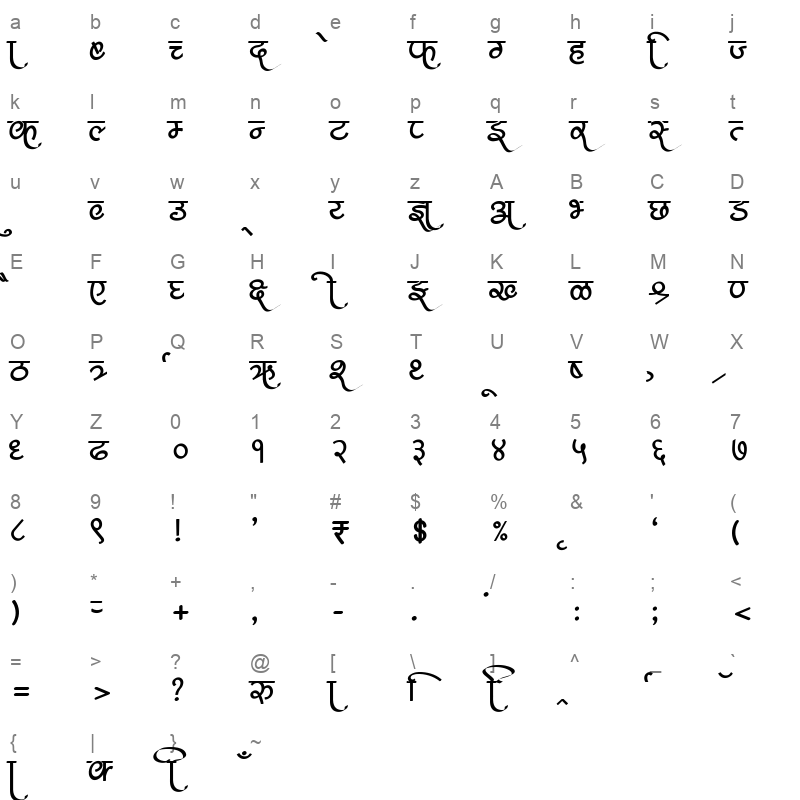 a b c d e f g h i j
ा च द े फ ग ह ि ज
k l m n o p q r s t
क ल म न ट इ र स त
u v w x y z A B C D
ु उ े ज्ञ अ भ छ ड
E F G H I J K L M N
ै ए घ ी ङ ख ळ ण
O P Q R S T U V W X
ठ त्र ऋ श ष
Y Z 0 1 2 3 4 5 6 7
ढ ० १ २ ३ ४ ५ ६ ७
8 9 ! " # $ % & ' (
८ ९ ! ’ ₹ $ % ‘ (
) * + , - . / : ; <
) + , - . : ; <
= > ? @ [ \ ] ^ _ `
= > ? रु ा ि
{ | } ~
ा ँ